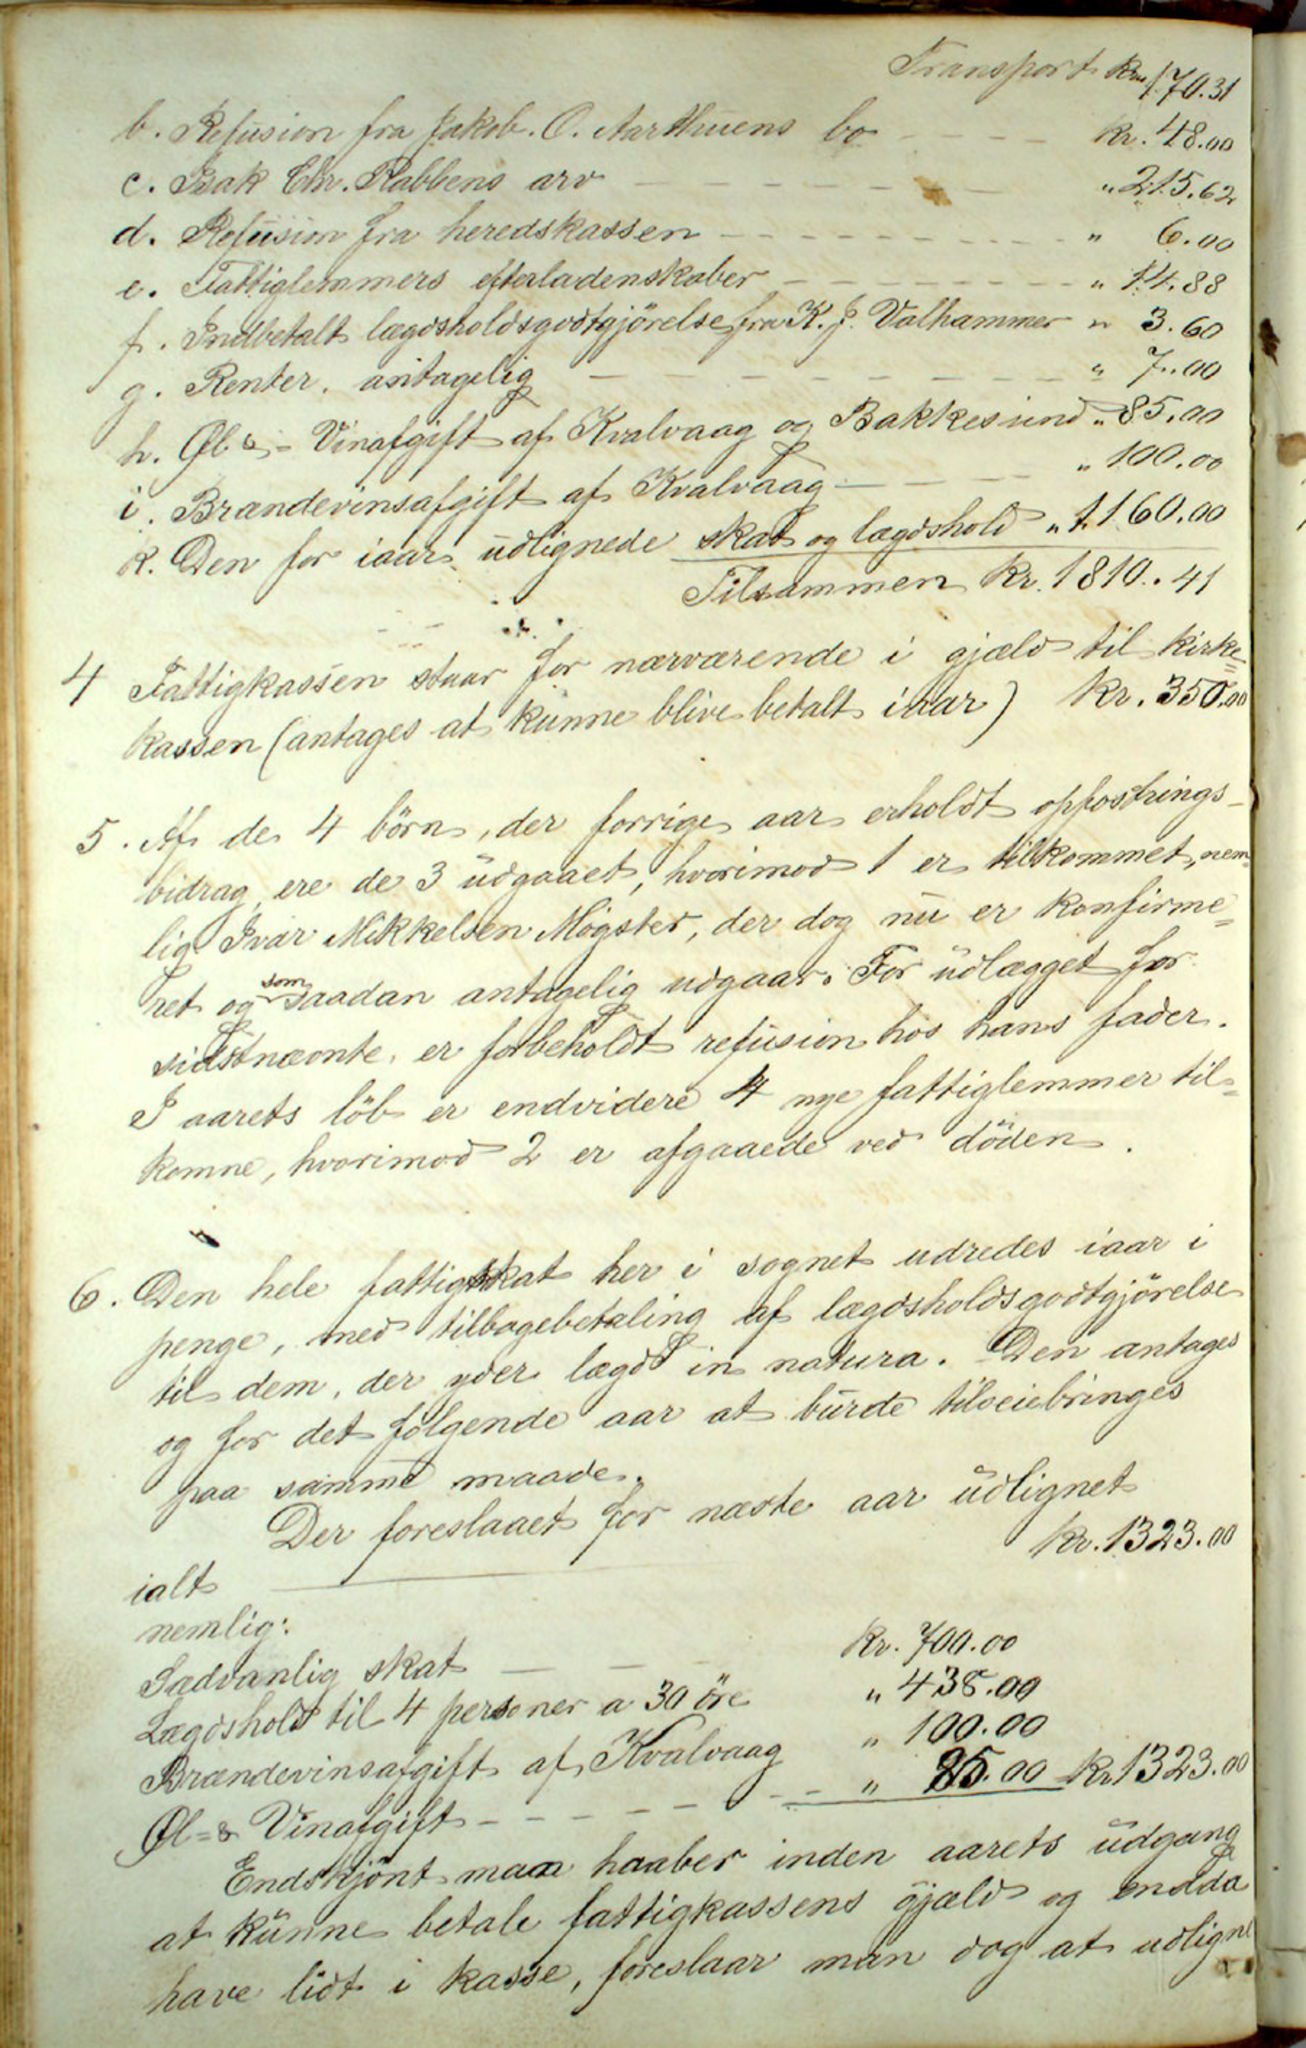 Transport Kr. 170.31
b. Refusion fra Jakob. O. Aarthuens bo — — kr. 48.00
c. Isak Chr. Rabbens arv — — — — — „ 215.62
d. Refusion fra heredskassen — — — — „ 6.00
e. Fattiglemmers efterladenskaber — — — „ 14.88
f. Indbetalt lægdsholdsgodtgjörelse fra K. J. Valhammer „ 3.60
g. Renter. antagelig — — — — — „ 7.00
h. Øl & - Vinafgift af Kvalvaag og Bakkesund „ 85.00
i. Brændevinsafgift af Kvalvaag — — — „ 100.00
k. Den for iaar udlignede skat og lægdshold „ 1.160.00
Tilsammen Kr. 1810.41
4 Fattigkassen staar for nærværende i gjæld til kirke=
kassen (antages at kunne blive betalt iaar) Kr. 350.00
5. Af de 4 börn, der forrige aar erholdt opfostrings-
bidrag, ere de 3 udgaaet, hvorimod 1 er tilkommet, nem
lig Ivar Mikkelsen Møgster, der dog nu er konfirme=
ret og som saadan antagelig udgaar. For udlægget for
sidstnævnte, er forbeholdt refusion hos hans fader.
I aarets löb er endvidere 4 nye fattiglemmer til=
komne, hvorimod 2 er afgaaede ved döden.
6. Den hele fattigskat her i sognet udredes iaar i
penge, med tilbagebetaling af lægdsholdsgodtgjörelse
til dem, der yder lægd in natura. Den antages
og for det fölgende aar at burde tilveiebringes
paa samme maade.
Der foreslaaet for næste aar udlignet
ialt ——— kr. 1323.00
nemlig:
Sædvanlig skat — — — Kr. 700.00
Lægdshold til 4 personer a 30 öre „ 438.00
Brændevinsafgift af Kvalvaag „ 100.00
Øl=& Vinafgift - - - - - - - „ 85.00 Kr. 1323.00
Endskjönt man haaber inden aarets udgang
at kunne betale fattigkassens gjæld og endda
have lidt i kasse, foreslaar man dog at udligne